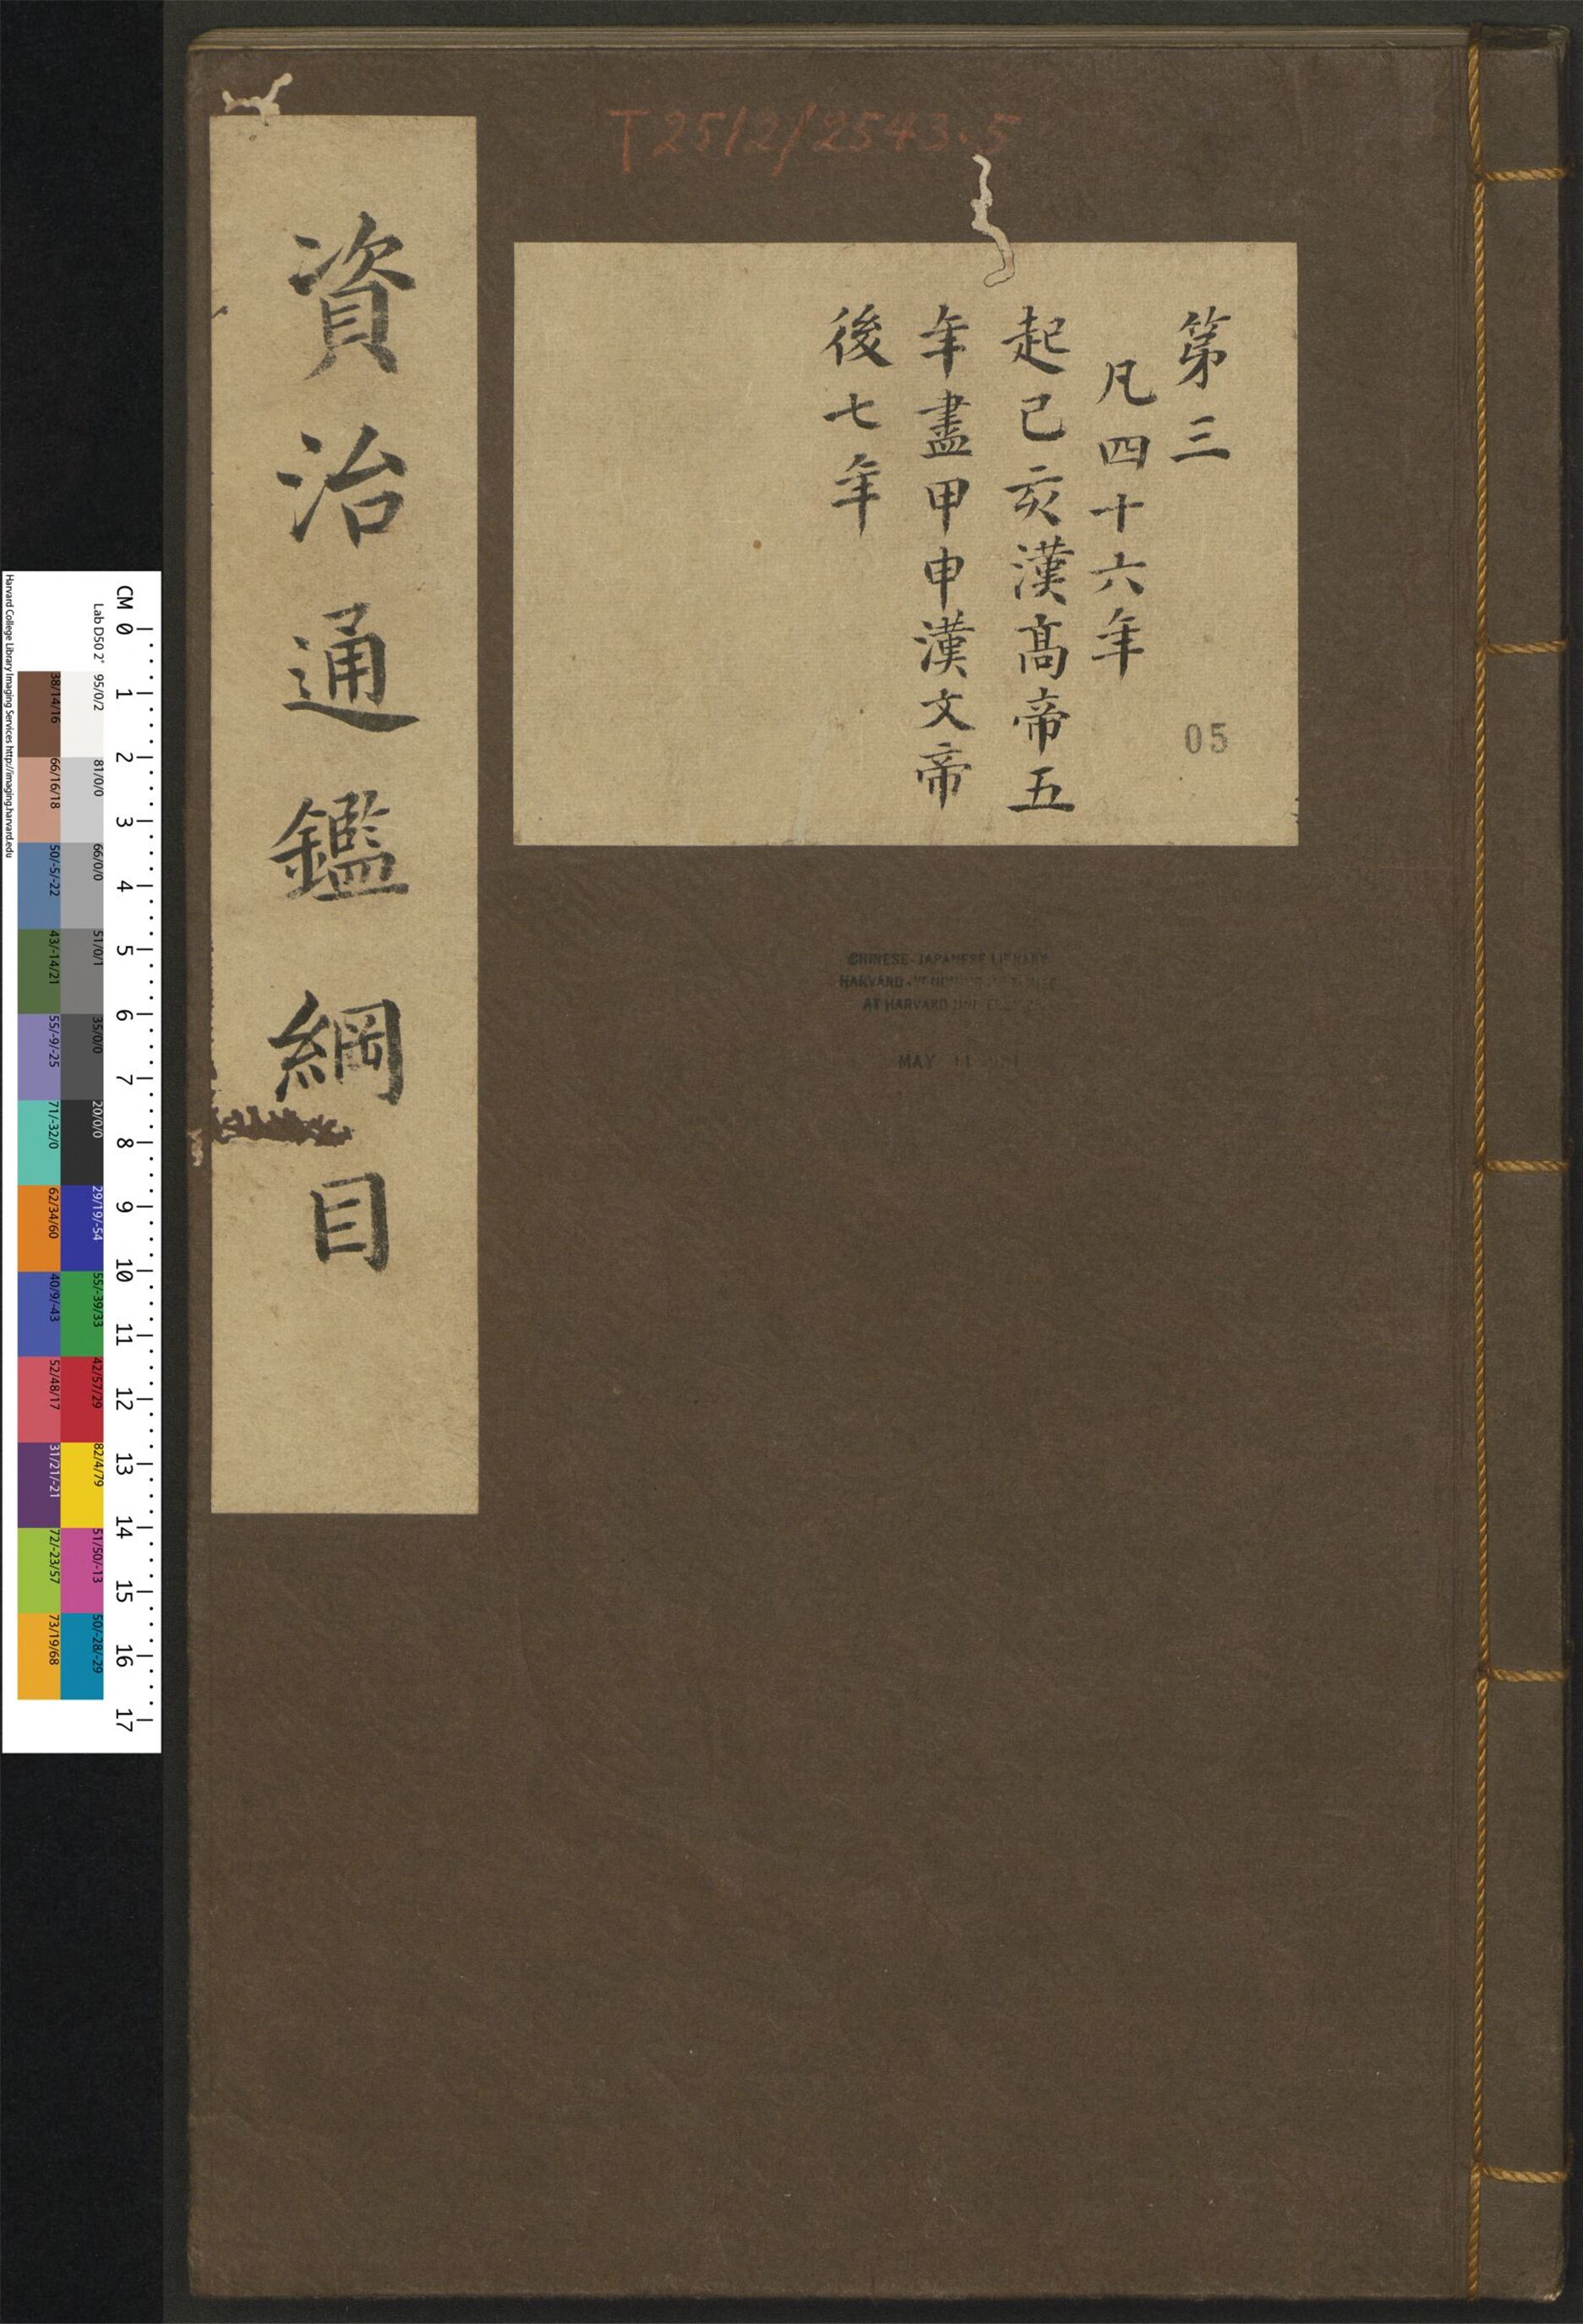 T 2512/2543.5
第三
凡四十六年
起己亥漢高帝五
年盡甲申漢文帝
後七年
05
資治通鑑綱目
CHINESE-JAPANESE LIBRARY
HARVARD-
AT HARVARD
MAY 11
CM 0 1 2 3 4 5 6 7 8 9 10 11 12 13 14 15 16 17
Lab D50 2° 95/0/2 81/0/0 66/0/0 51/0/1 35/0/0 20/0/0 29/19/-54 55/-39/33 42/57/29 82/4/79 51/50/-13 50/-28/-29
38/14/16 66/16/18 50/-5/-22 43/-14/21 55/-9/-25 71/-32/0 62/34/60 40/9/-43 52/48/17 31/21/-21 72/-23/57 73/19/68
Harvard College Library Imaging Services http://imaging.harvard.edu